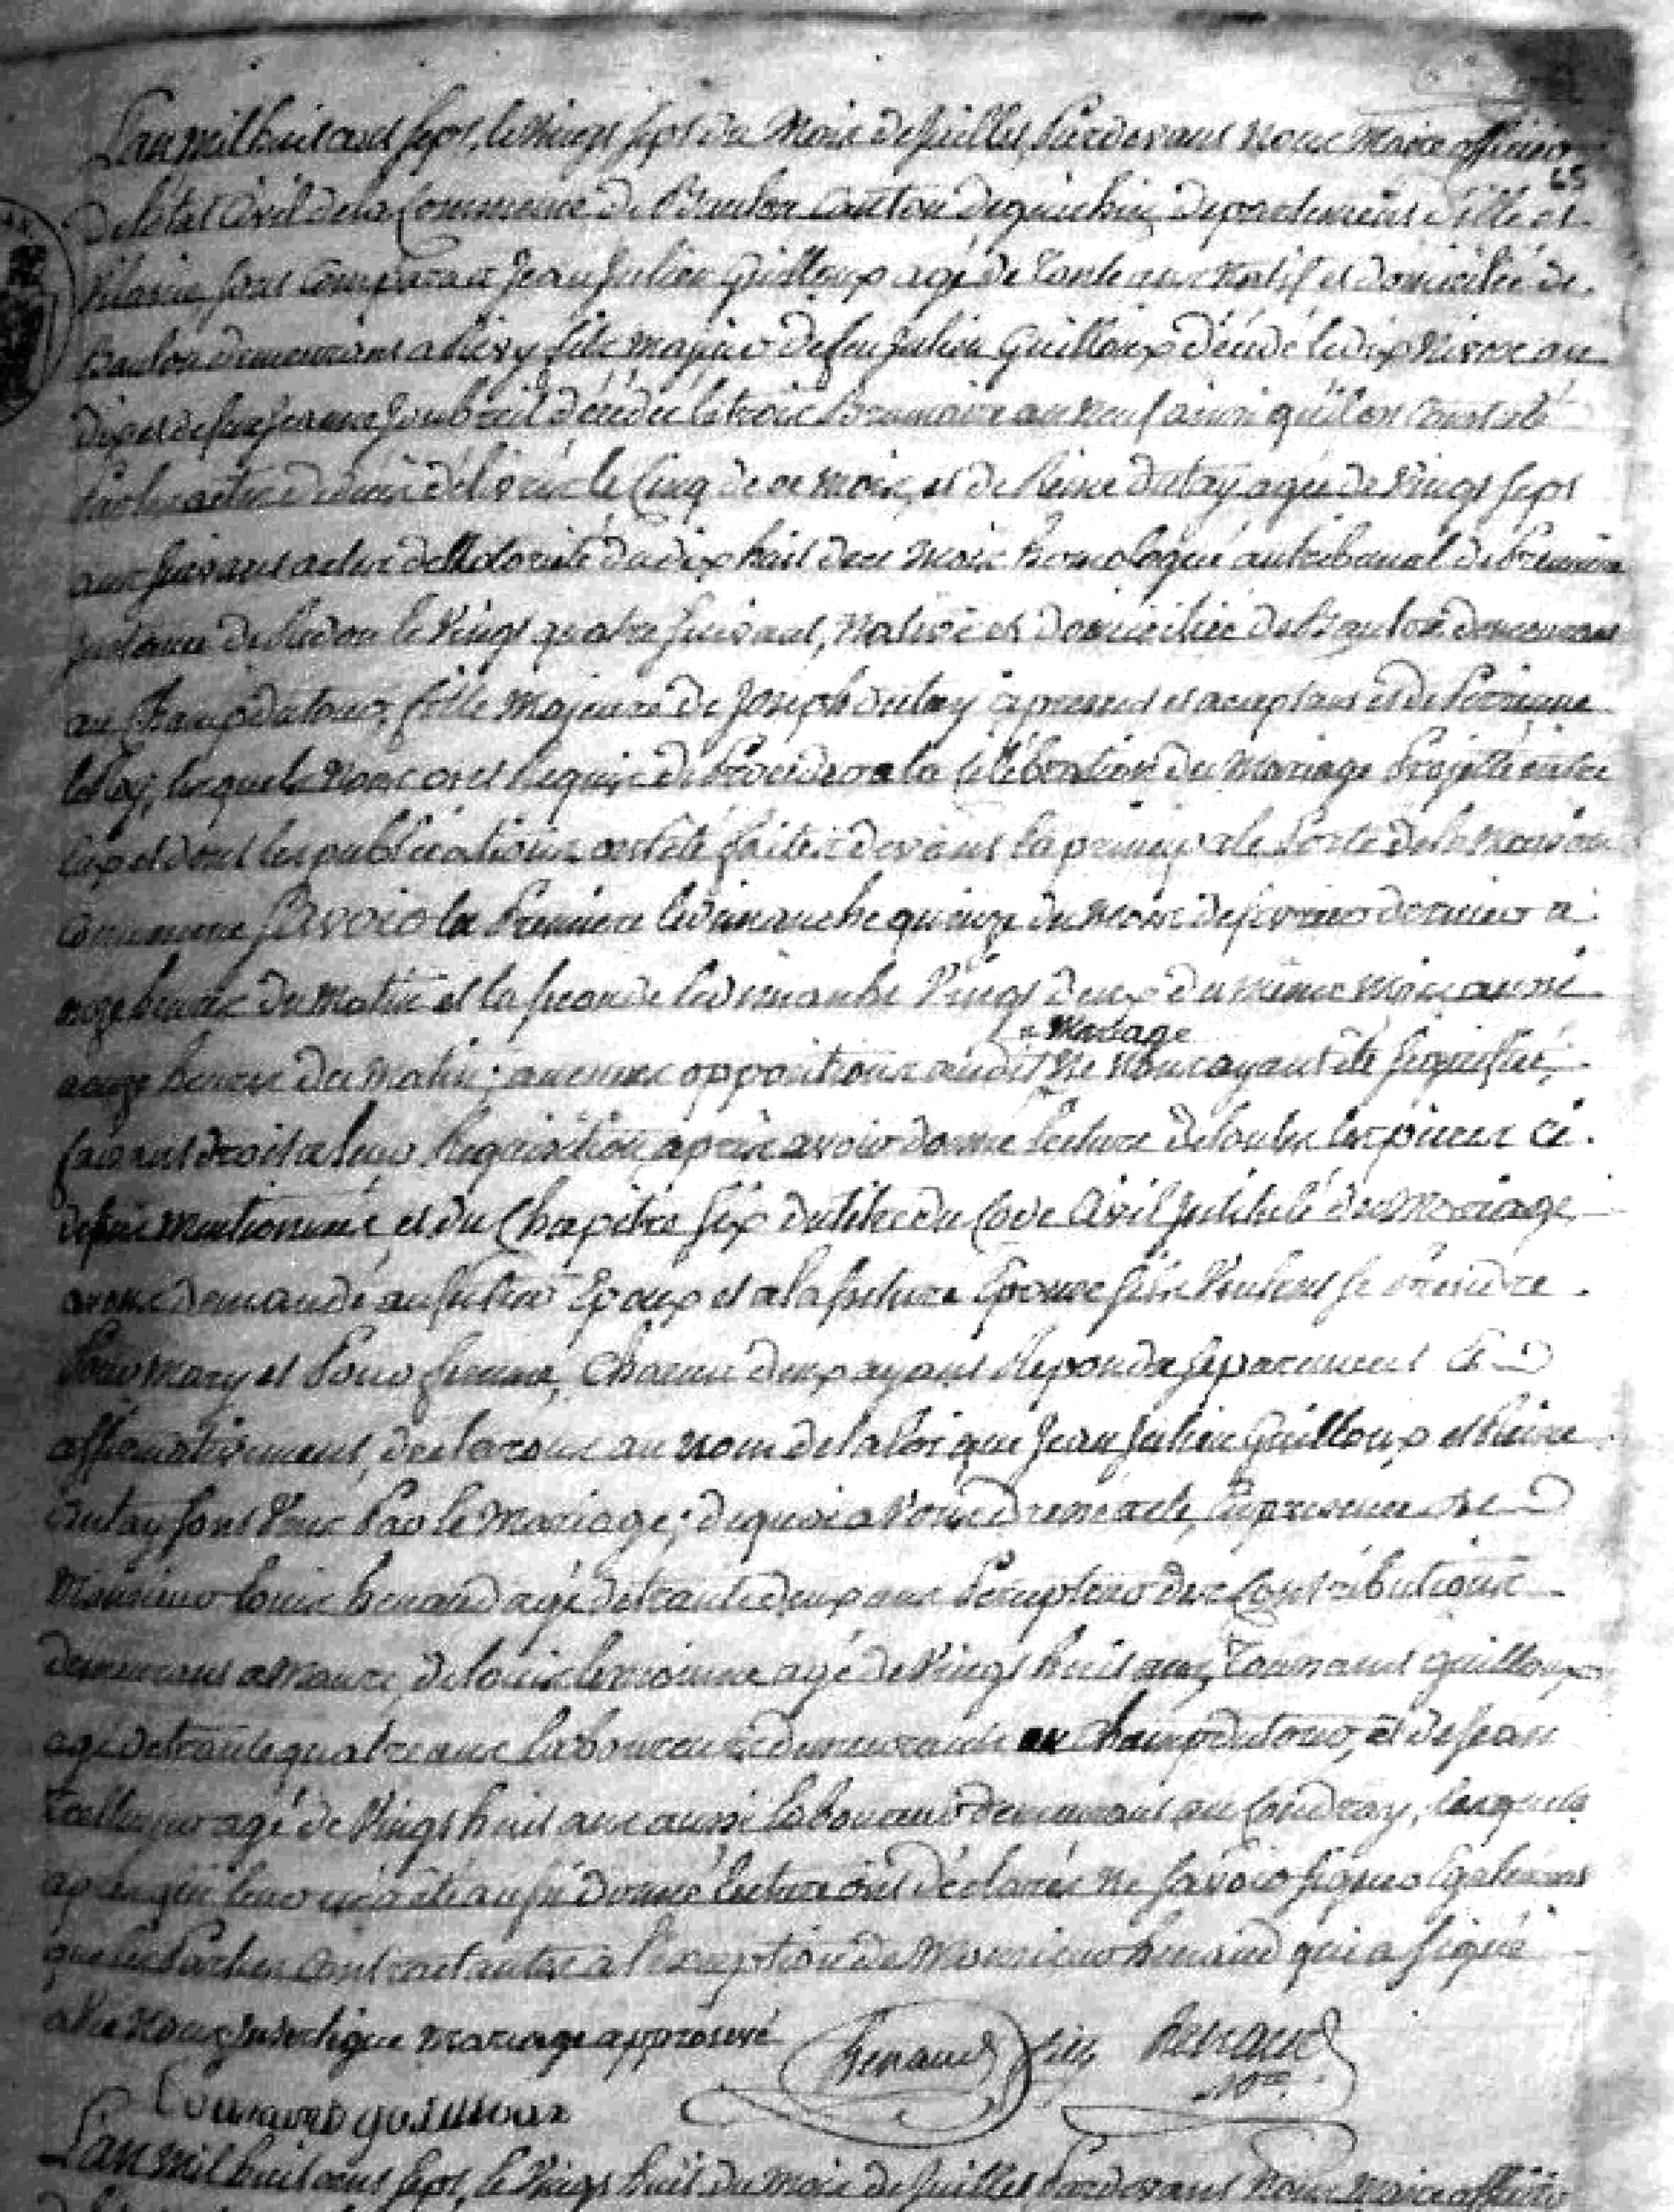 L'an mil huit cent sept, le vingt sept du mois de juillet, pardevant nous maire officier
65
de l'état civil de la commune de Baulon canton de guichin departement d'ille et
vilaine sont comparus jean julien Guilloux agé de trante ans natif et domicilié de
Baulon demeurant a fils majeur de feu julien Guilloux décédé le dix nivose an
dix et de feue jeanne joubreil décédée le trois brumaire an neuf ainsi qu'il est constaté
par les actes de décès délivrés le cinq de ce mois, et de Reine dutay agée de vingt sept
ans suivant actes de notorieté du dix huit de ce mois homologué au tribunal de premiere
instance de Redon le vingt quatre suivant, native et domiciliée de Baulon demeurant
au champ du tour, fille majeure de joseph dutay ci present et aceptant et de perrinne
lesquels nous ont requis de proceder a la célébration du mariage projetté entre
eux et dont les publications ont été faites devant la principale porte de la maison
commune savoir la premiere le dimanche quinze du mois de fevrier dernier a
onze heures du matin et la seconde le dimanche vingt deux du même mois aussi
mariage
a onze heures du matin; aucunes oppositions audit ne nous ayant été signifiée,
faisant droit a leur requisition après avoir donné lecture de toutes les pieces ci
dessus mentionnée et du chapitre six du titre du code civil intitulé du mariage,
avons demandé au futur époux et a la future épouse s'ils veulent se prendre
pour mary et pour femme, chacun d'eux ayant repondu separement et
affirmativement, declarons au nom de la loi que jean julien Guilloux et Reine
dutay sont unis par le mariage; de quoi avons dressé acte, en presence de
monsieur louis henaud agé de trante deux ans percepteur des contributions
demeurant a maure, de louis lemoinne agé de vingt huit ans, guilloux
agé de trante quatre ans laboureurs demeurants au champ du tour, et de jean
agé de vingt huit ans aussi laboureur demeurant au coudray, lesquels
après qu'il leur en a été aussi donné lecture ont déclarés ne savoir signer egalement
que les parties contractantes a l'exception de monsieur henaud qui a signé
avec nous mariage approuvé
henaud
guilloux
L'an mil huit cent sept, le vingt huit du mois de juillet pardevant nous maire officier